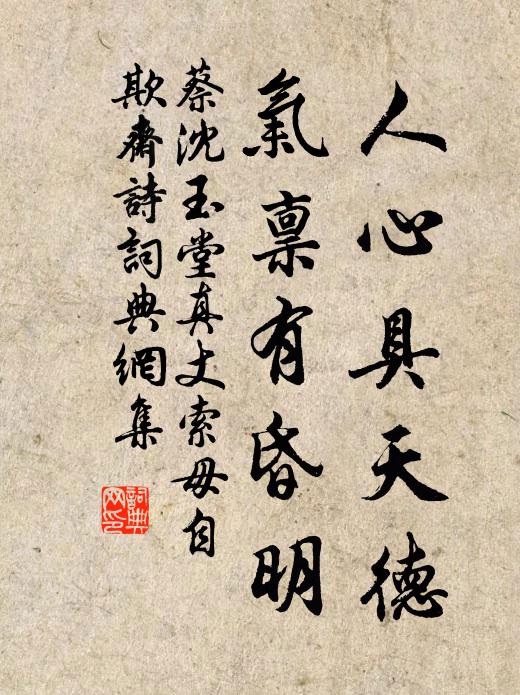 人心具天德
氣稟有昏明
蔡沈玉堂真丈索毋自
欺齋詩詞典網集
詞典
网印